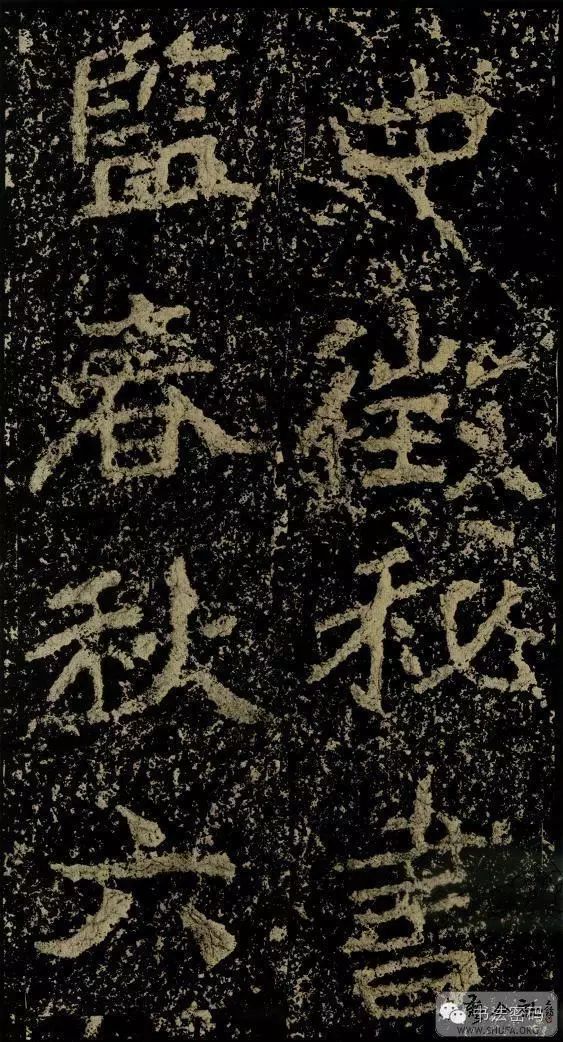 史徵秘書
監春秋六
书法密码
WWW.SHUFA.ORG